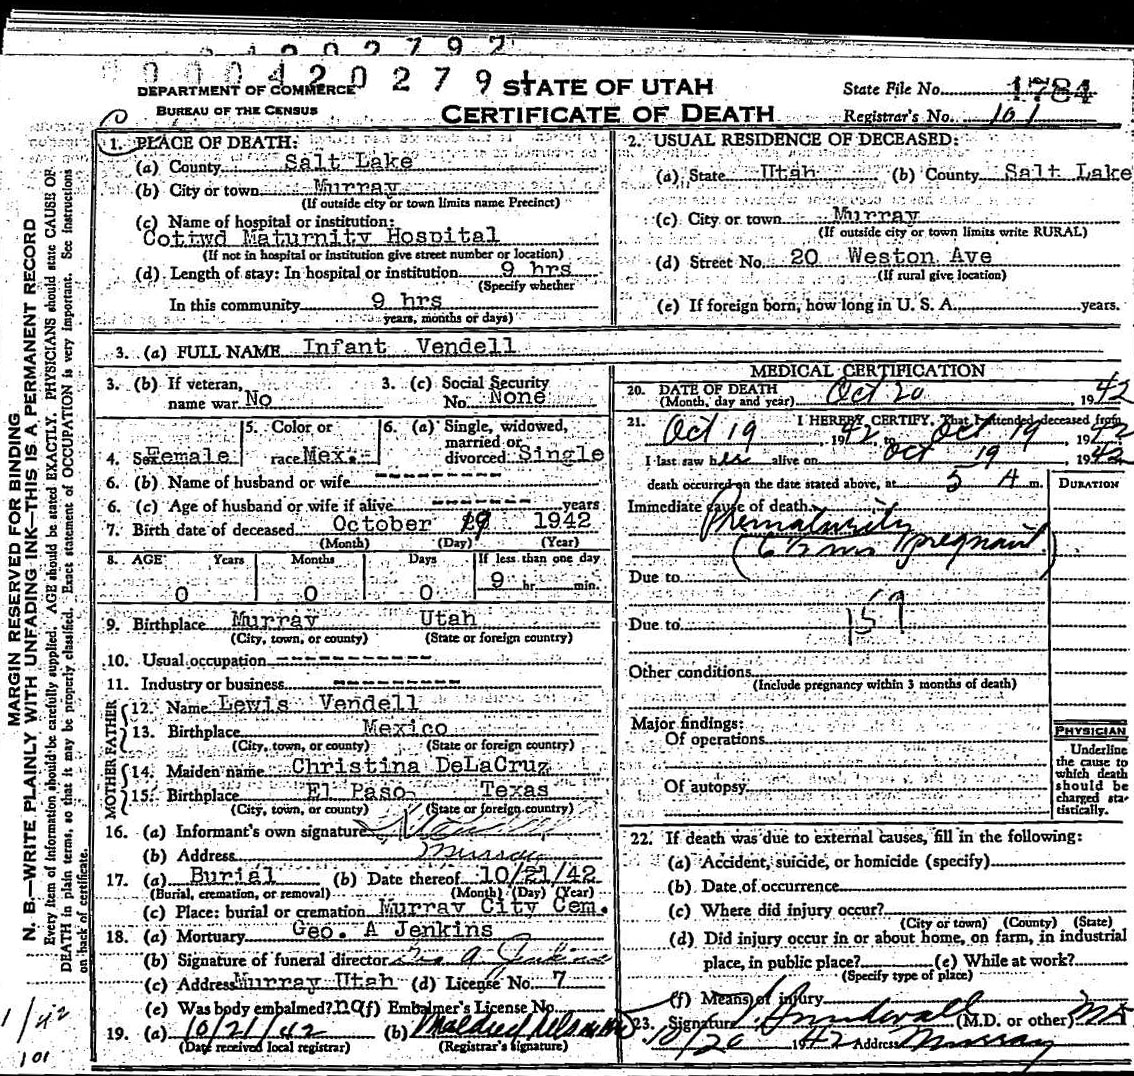 0004202791
DEPARTMENT OF COMMERCE
BUREAU OF THE CENSUS
STATE OF UTAH
CERTIFICATE OF DEATH
State File No. 1784
Registrar's No. 161
MARGIN RESERVED FOR BINDING
N. B.—WRITE PLAINLY WITH UNFADING INK—THIS IS A PERMANENT RECORD
Every item of information should be carefully supplied. AGE should be stated EXACTLY. PHYSICIANS should state CAUSE OF
DEATH in plain terms, so that it may be properly classified. Exact statement of OCCUPATION is very important. See instructions
on back of certificate.
1. PLACE OF DEATH:
(a) County Salt Lake
(b) City or town Murray
(If outside city or town limits name Precinct)
(c) Name of hospital or institution:
Cottwd Maternity Hospital
(If not in hospital or institution give street number or location)
(d) Length of stay: In hospital or institution 9 hrs
(Specify whether
In this community 9 hrs
years, months or days)
2. USUAL RESIDENCE OF DECEASED:
(a) State Utah (b) County Salt Lake
(c) City or town Murray
(If outside city or town limits write RURAL)
(d) Street No. 20 Weston Ave
(If rural give location)
(e) If foreign born, how long in U. S. A. years.
3. (a) FULL NAME Infant Vendell
3. (b) If veteran, name war No
3. (c) Social Security No. None
4. Sex Female
5. Color or race Mex.
6. (a) Single, widowed, married or divorced Single
6. (b) Name of husband or wife
6. (c) Age of husband or wife if alive years
7. Birth date of deceased October 19 1942
(Month) (Day) (Year)
8. AGE Years Months Days If less than one day
0 0 0 9 hr. min.
9. Birthplace Murray Utah
(City, town, or county) (State or foreign country)
10. Usual occupation
11. Industry or business
FATHER
12. Name Lewis Vendell
13. Birthplace Mexico
(City, town, or county) (State or foreign country)
MOTHER
14. Maiden name Christina DeLaCruz
15. Birthplace El Paso Texas
(City, town, or county) (State or foreign country)
16. (a) Informant's own signature
(b) Address Murray
17. (a) Burial (b) Date thereof 10/21/42
(Burial, cremation, or removal) (Month) (Day) (Year)
(c) Place: burial or cremation Murray City Cem.
18. (a) Mortuary Geo. A Jenkins
(b) Signature of funeral director Geo A. Jenkins
(c) Address Murray Utah (d) License No. 7
(e) Was body embalmed? no (f) Embalmer's License No.
19. (a) 10/21/42 (b)
(Date received local registrar) (Registrar's signature)
MEDICAL CERTIFICATION
20. DATE OF DEATH
(Month, day and year) Oct 20, 1942
21. I HEREBY CERTIFY, That I attended deceased from
Oct 19, 1942 to Oct 19, 1942
I last saw her alive on Oct 19, 1942
death occurred on the date stated above, at 5 A m.
DURATION
Immediate cause of death
Prematurity
(6 1/2 mos pregnant)
Due to
159
Due to
Other conditions
(Include pregnancy within 3 months of death)
Major findings:
Of operations
Of autopsy
PHYSICIAN
Underline
the cause to
which death
should be
charged sta-
tistically.
22. If death was due to external causes, fill in the following:
(a) Accident, suicide, or homicide (specify)
(b) Date of occurrence
(c) Where did injury occur?
(City or town) (County) (State)
(d) Did injury occur in or about home, on farm, in industrial
place, in public place? (e) While at work?
(Specify type of place)
(f) Means of injury
23. Signature Sundwall (M.D. or other) MD
10/20 1942 Address Murray
1/42
101